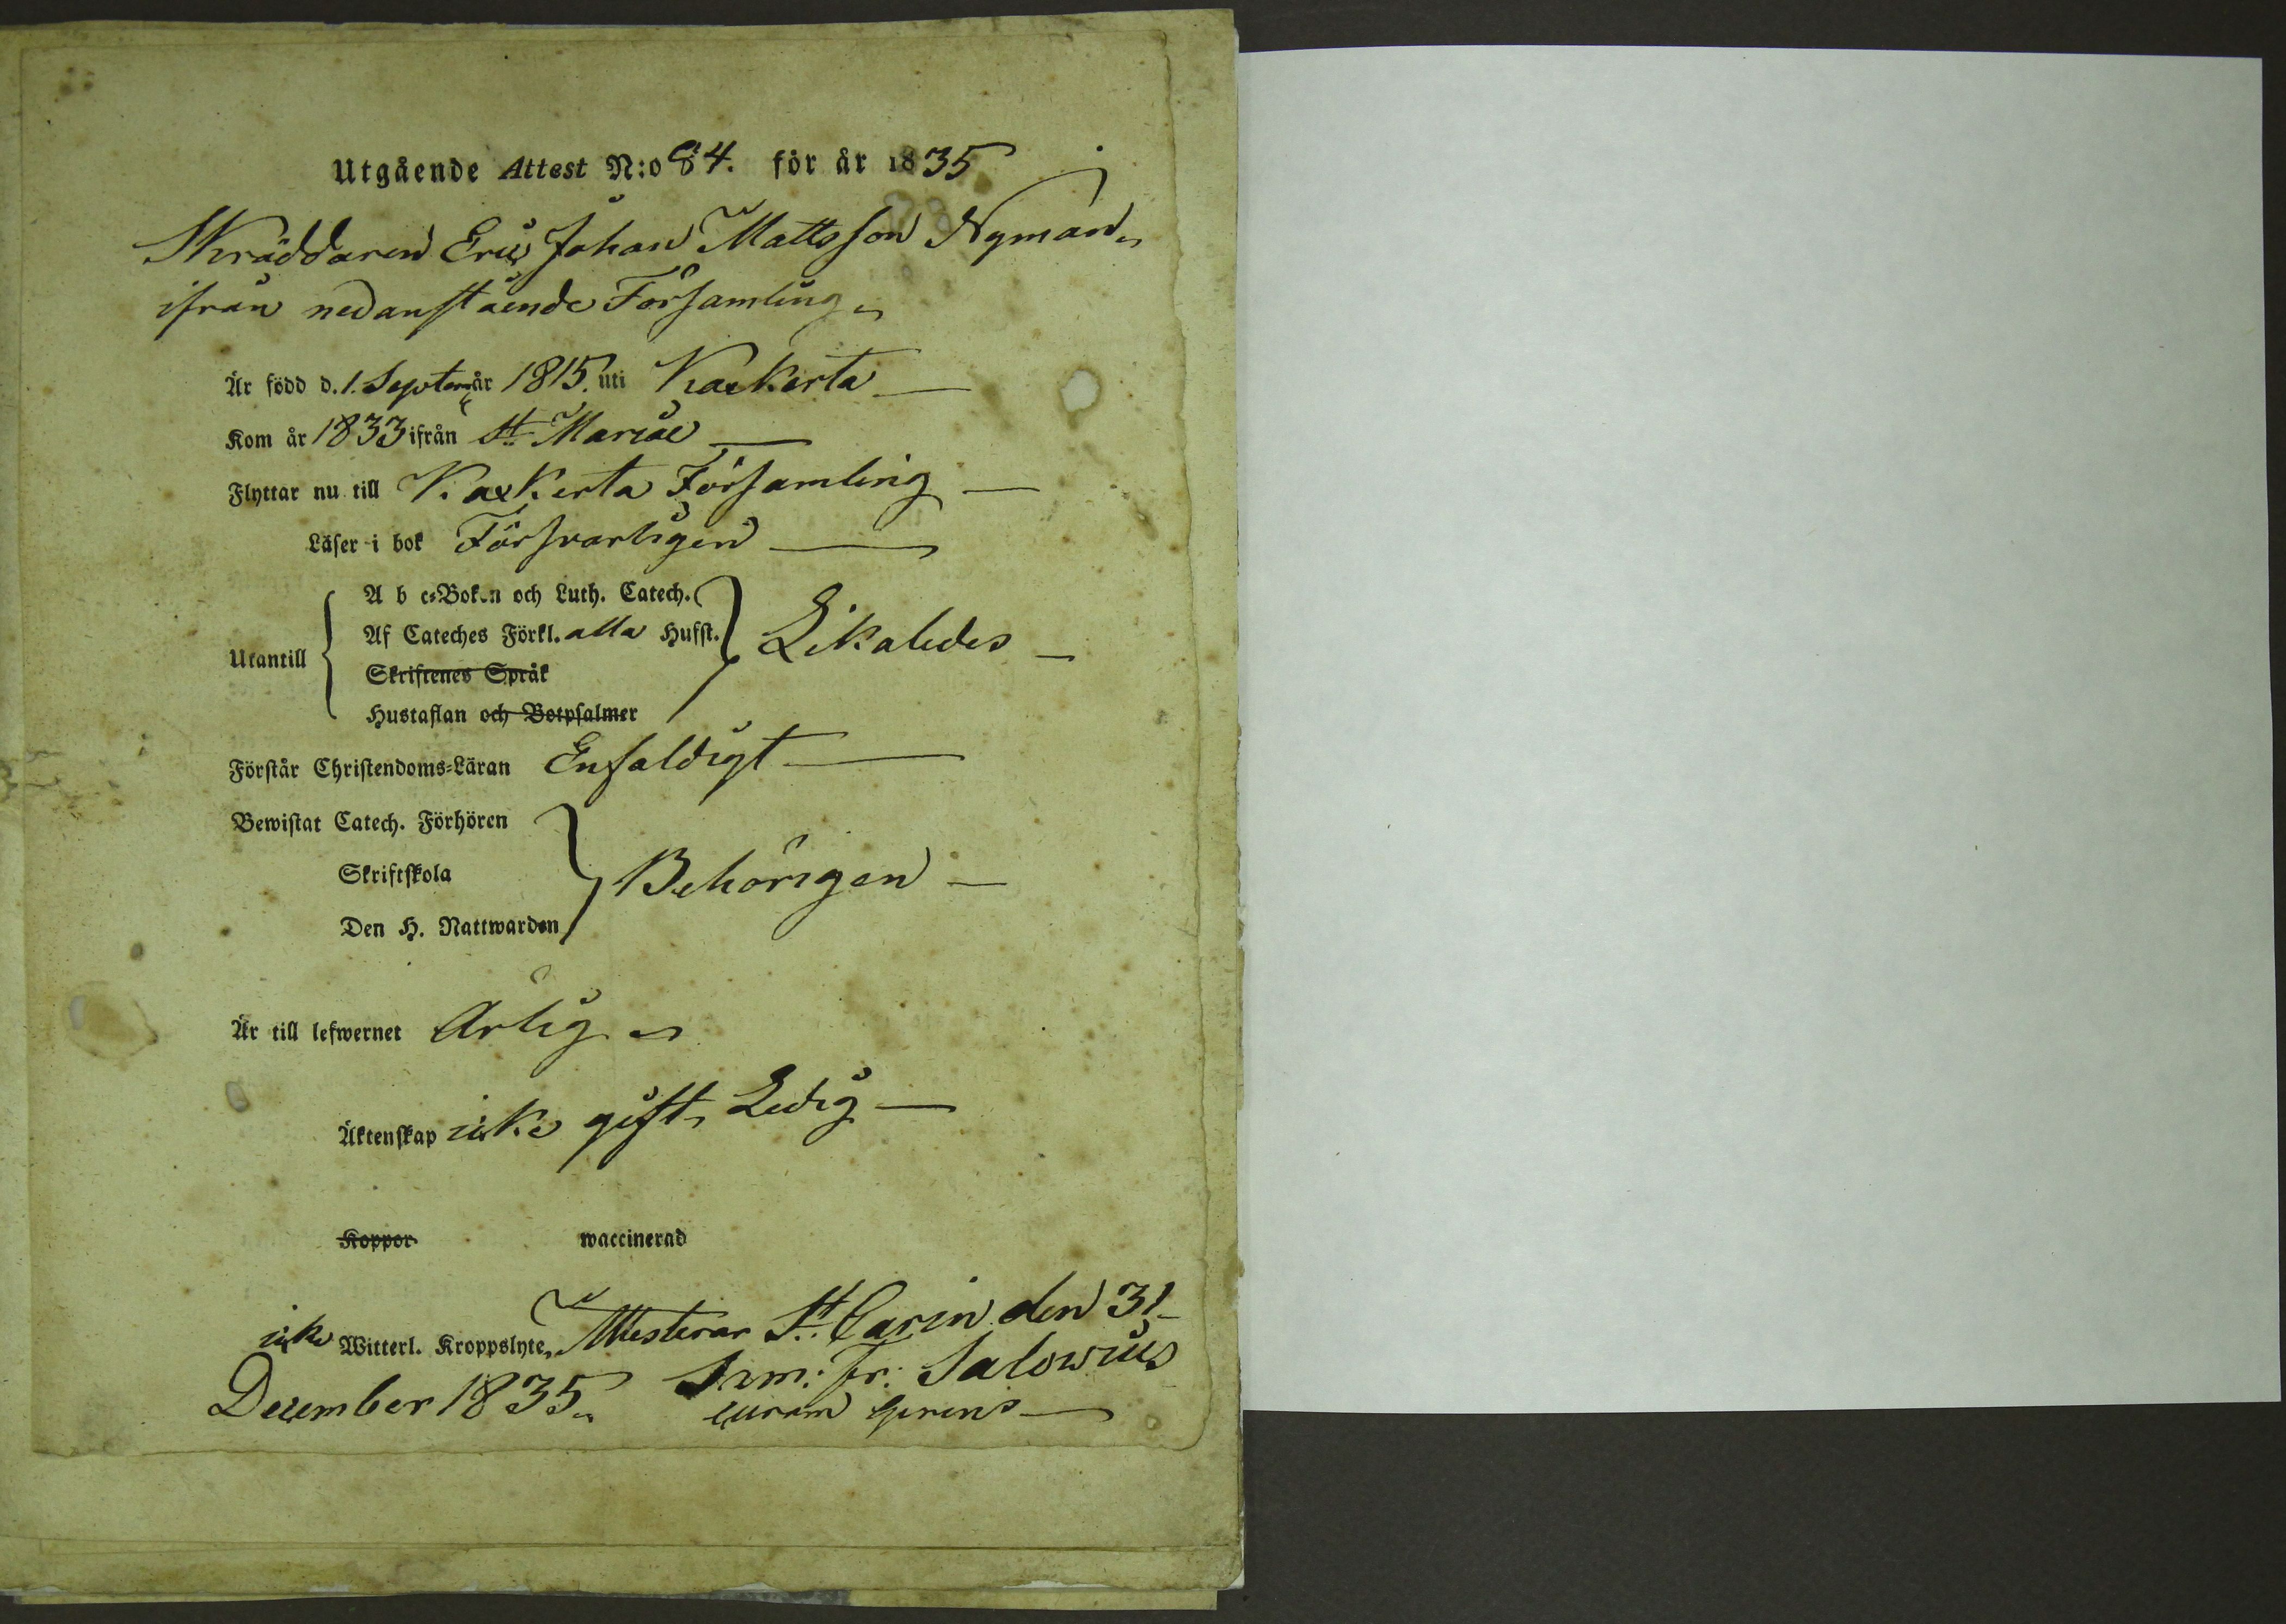 Utgående Attest N:o 84. för år 1835
Skräddaren Eric Johan Mattsson Nyman
ifrån nedanstående Församling
Är född d. 1. Septem år 1815. uti Kackerta
Kom år 1833 ifrån St Mariæ
Flyttar nu till Kackerta Församling
Läser i bok Försvarligen
A b c-Boken och Luth. Catech.
Af Cateches Förkl. alla Hufst.
Utantill Likaledes
Skriftenes Språk
Hustaflan och Botpsalmer
Förstår Christendoms-Läran Enfaldigt
Bewistat Catech. Förhören
Skriftskola Behörigen
Den H. Nattwarden
Är till lefwernet Ärlig
Äktenskap icke gift, Ledig
Koppor waccinerad
icke Witterl. Kroppslyte, Attesterar St. Carin den 31
December 1835. Fr: Salovius
curam gerens